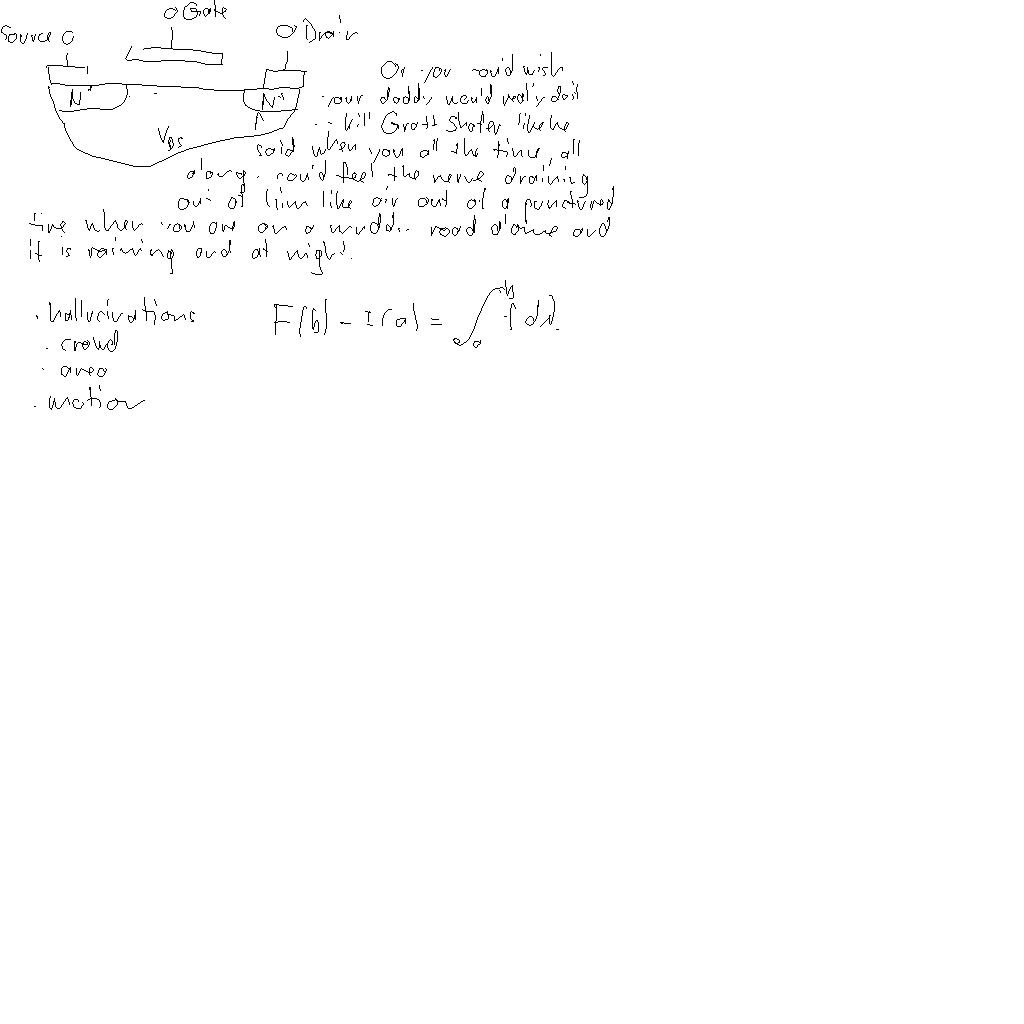 Gate
Source
Drain
N+ N+
V_DS
Or you could wish
your daddy would really do it
-- kill Gratt Shafer like he
said when you all the time, all
along. could feel the nerve draining
out of him like air out of a punctured
tire when you are on a muddy road alone and
it is raining and at night.
. hallucinations
. crowd
. area
. motion
F(b) - F(a) = ∫_a^b f dλ.